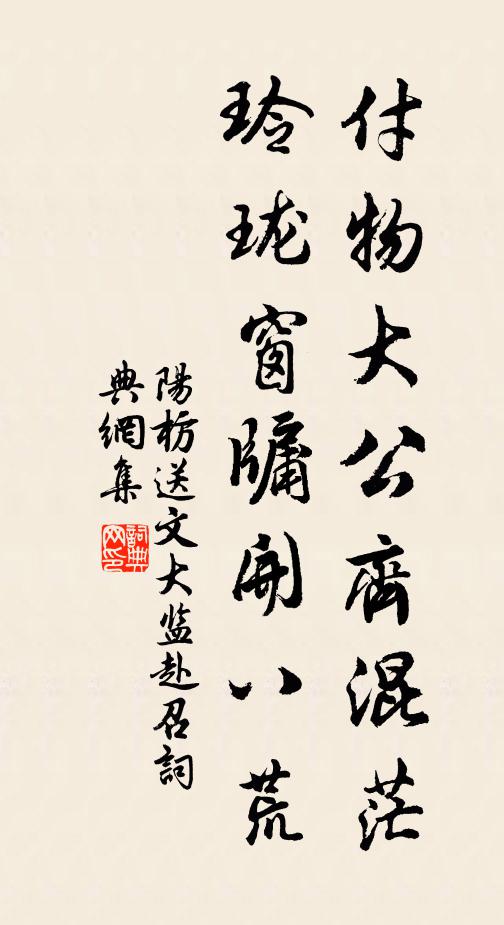 付物大公齊混茫
玲珑窗牖開八荒
陽枋送文大监赴召詞
典網集
詞典网印